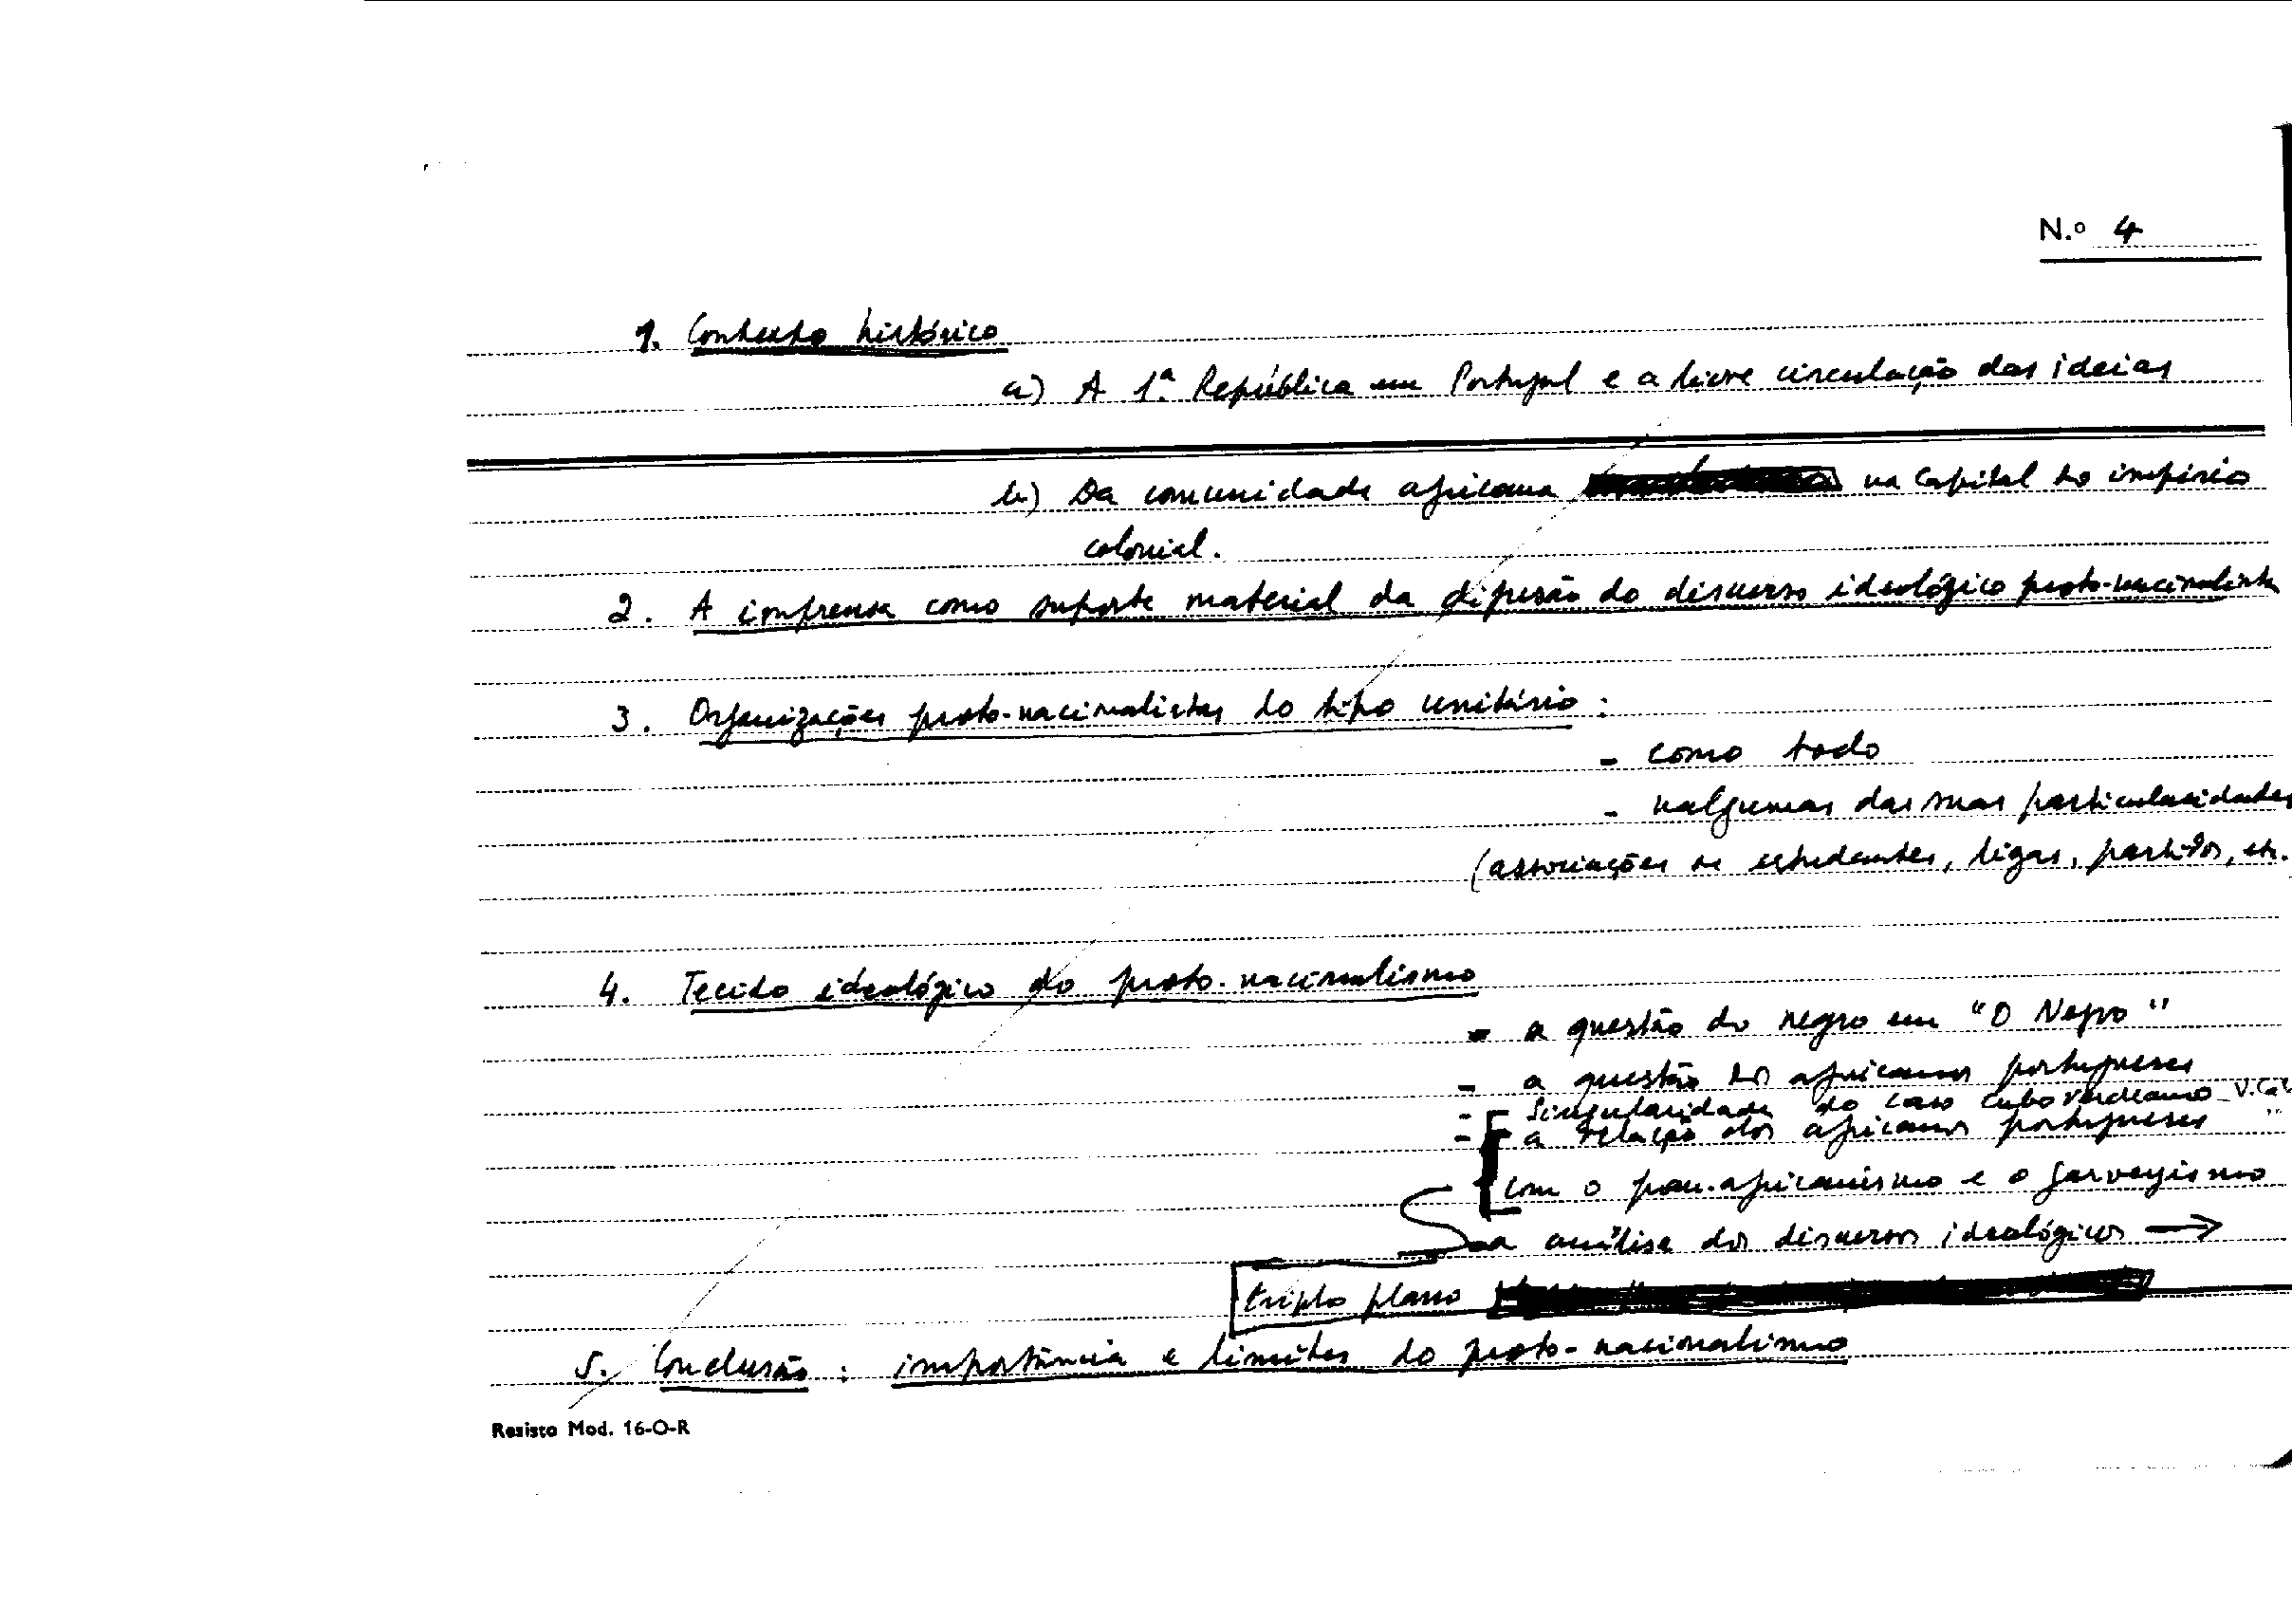 N.º 4
1. Contexto histórico
a) A 1.ª República em Portugal e a livre circulação das ideias
b) Da comunidade africana na Capital do império
colonial.
2. A imprensa como suporte material da difusão do discurso ideológico proto-nacionalista
3. Organizações proto-nacionalistas do tipo unitário :
- como todo
- nalgumas das suas particularidades
(associações de estudantes, ligas, partidos, etc.
4. Tecido ideológico do proto-nacionalismo
- a questão do negro em "O Negro"
- a questão dos africanos portugueses
- Singularidade do caso caboverdeano
- a relação dos africanos portugueses "
com o pan-africanismo e o garveyismo
a análise dos discursos ideológicos →
triplo plano
5. Conclusão : importância e limites do proto-nacionalismo
Resisto Mod. 16-O-R